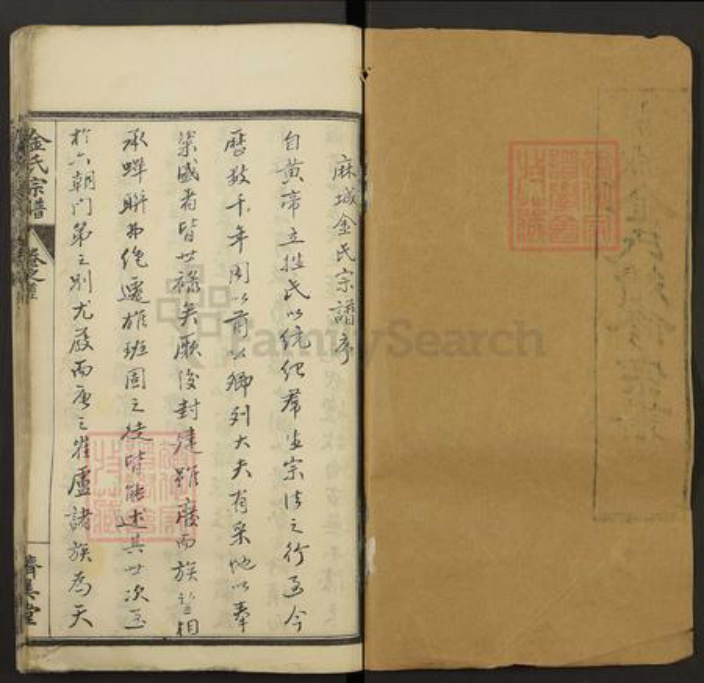 麻城金氏宗譜序
自黃帝立姓氏以統紀羣生宗法之行至今
歷数千年周以前以卿列大夫有采地以奉
粢盛者皆世祿矣厥後封建雖廢而族望相
承蟬聯弗絕遷雄班固之徒皆能述其世次至
於六朝門第之別尤嚴而唐之崔盧諸族為天
金氏宗譜
卷之首
濟美堂
FamilySearch